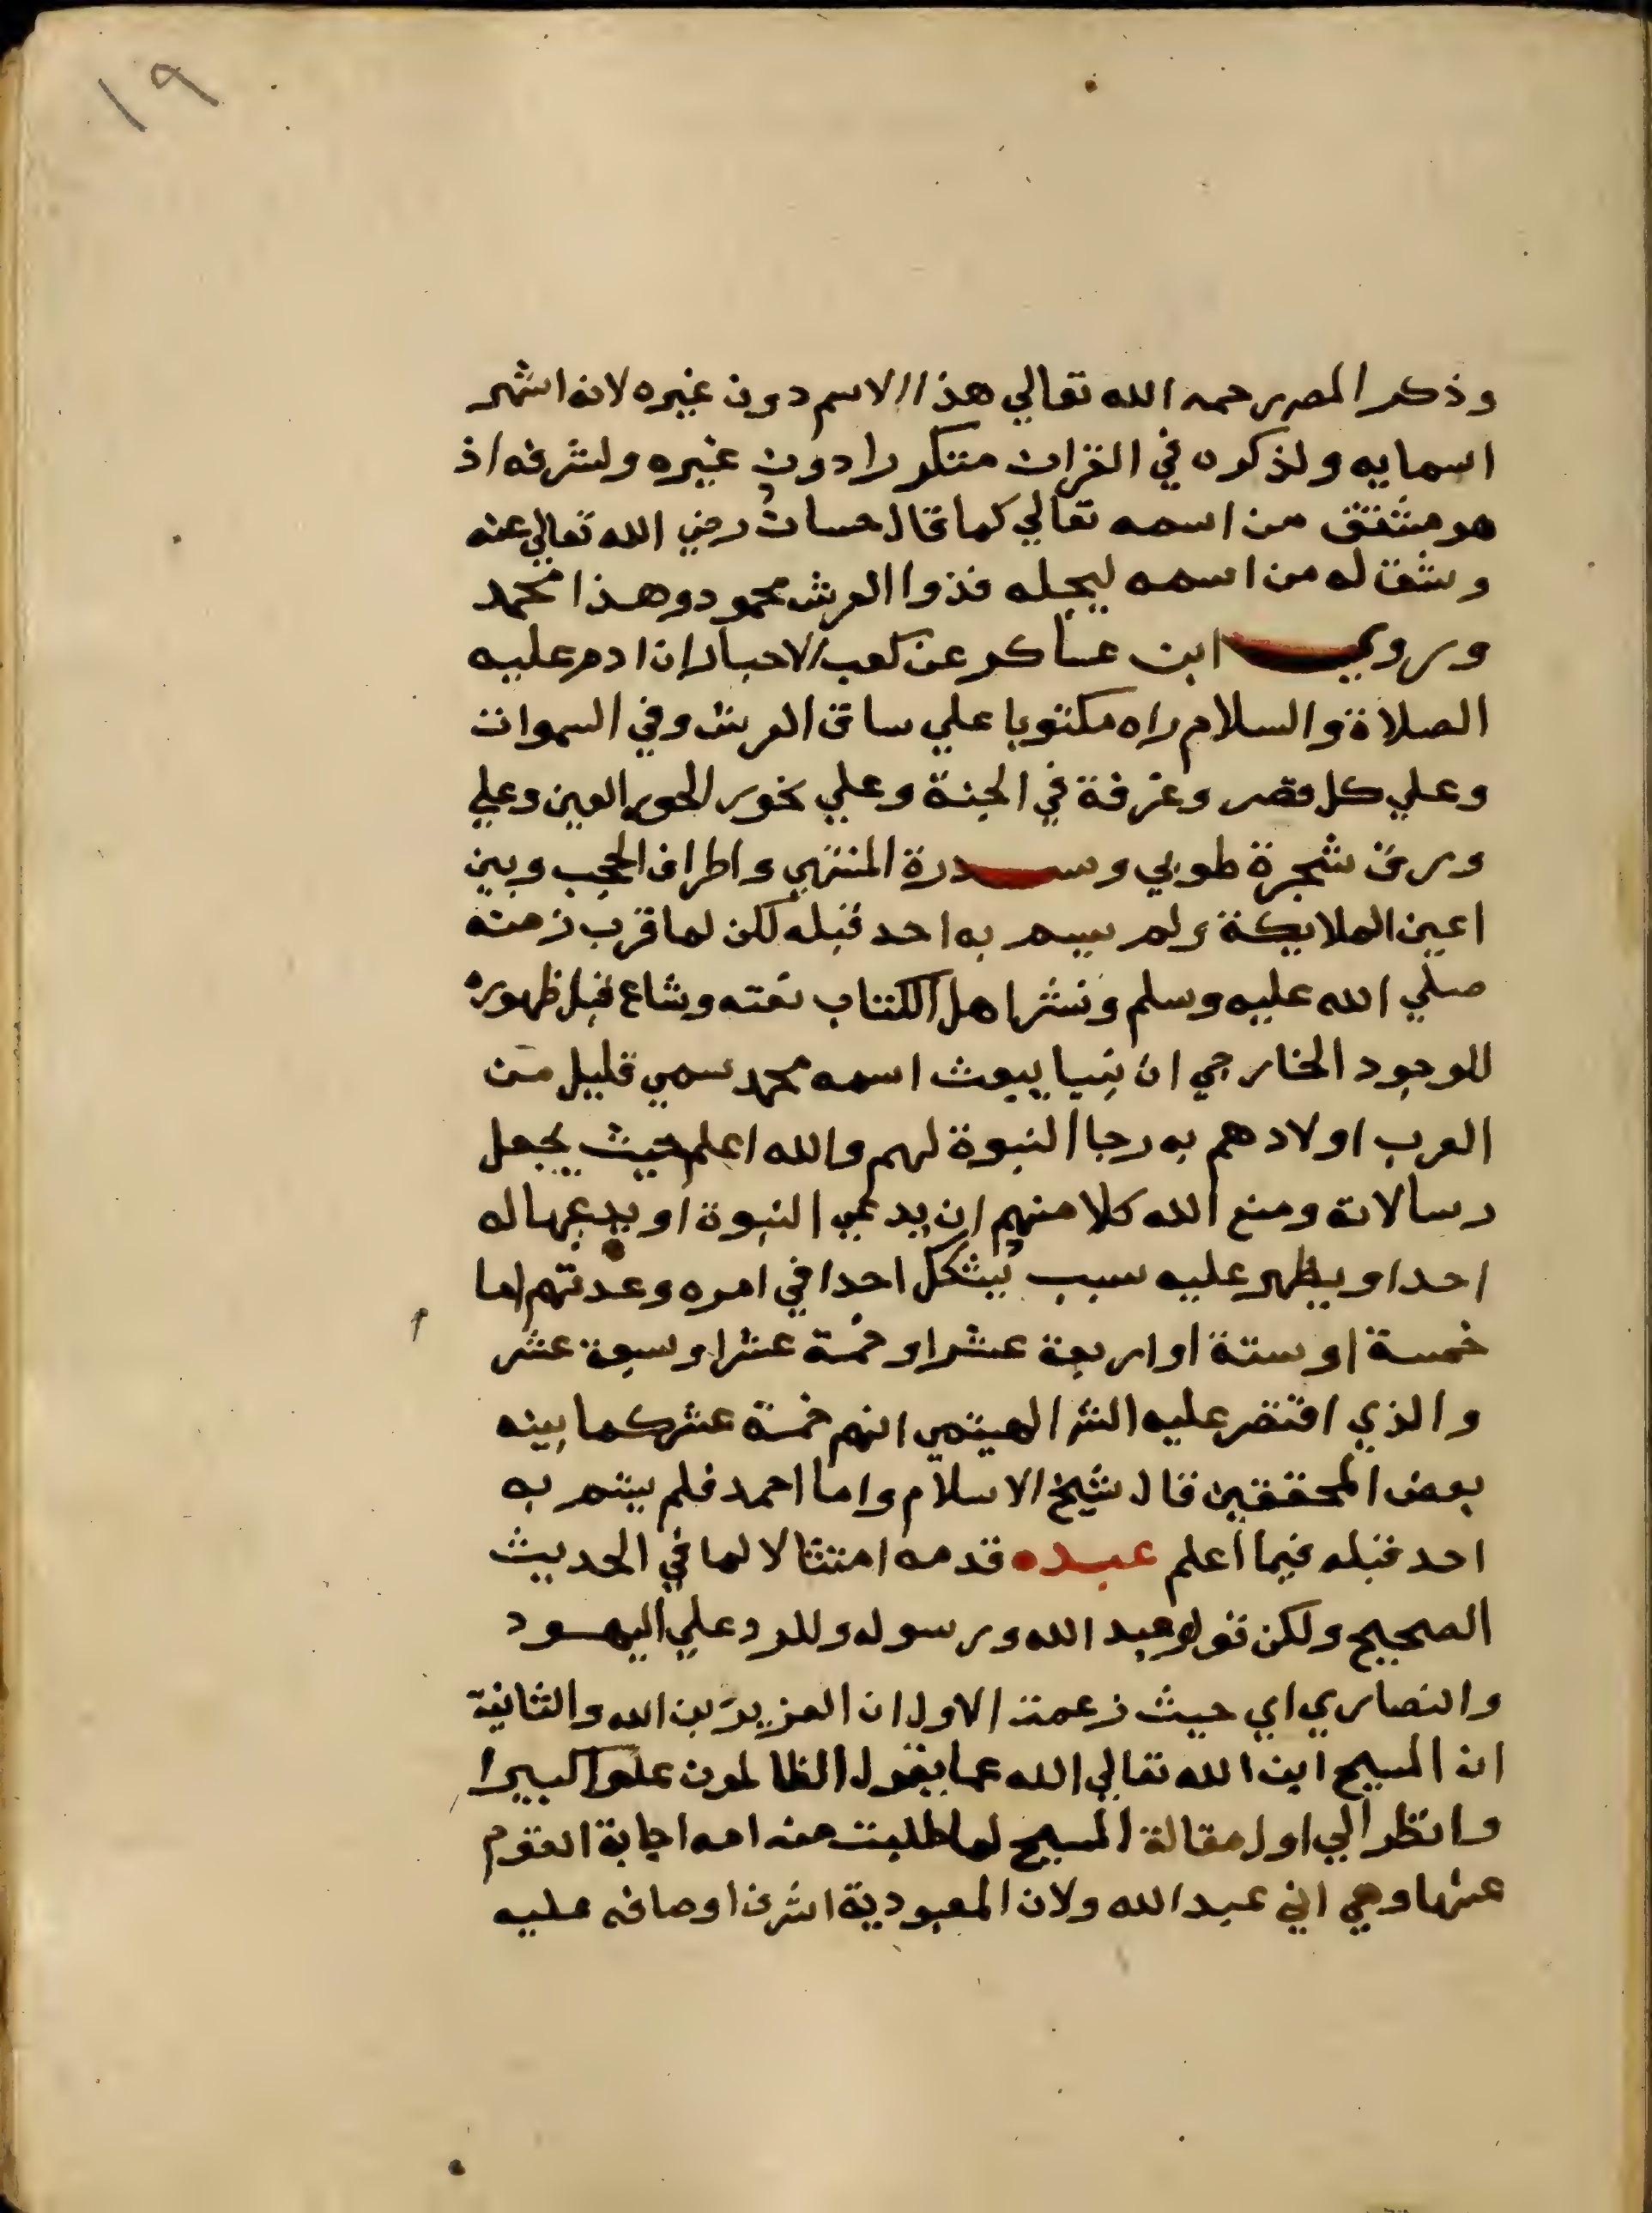 ١٩
وذكر المصر رحمه الله تعالي هذا الاسم دون غيره لانه اشهر
اسمايه ولذكره في القران متكررا دون غيره ولشرفه اذ
هو مشتق من اسمه تعالي كما قال حسان رضي الله تعالي عنه
وشق له من اسمه ليجله فذوا العرش محمود وهذا محمد
وروي ابن عساكر عن كعب الاحبار ان ادم عليه
الصلاة والسلام راه مكتوبا علي ساق العرش وفي السموات
وعلي كل قصر وغرفة في الجنة وعلي نحور الحور العين وعلي
ورق شجرة طوبي وسدرة المنتهي واطراف الحجب وبين
اعين الملايكة ولم يسم به احد قبله لكن لما قرب زمنه
صلي الله عليه وسلم ونشر اهل الكتاب نعته وشاع قبل ظهوره
للوجود الخارجي ان نبيا يبعث اسمه محمد سمي قليل من
العرب اولادهم به رجا النبوة لهم والله اعلم حيث يجعل
رسالاته ومنع الله كلا منهم ان يدعي النبوة او يدعيها له
احد او يظهر عليه سبب يشكل احدا في امره وعدتهم اما
خمسة او ستة او اربعة عشر او خمسة عشر او سبعة عشر
والذي اقتصر عليه الشر الهيتمي انهم خمسة عشر كما بينه
بعض المحققين قال شيخ الاسلام واما احمد فلم يتسم به
احد قبله فيما أعلم عبده قدمه امتثالا لما في الحديث
الصحيح ولكن قولوا عبد الله ورسوله وللرد علي اليهود
والنصاري اي حيث زعمت الاول ان العزير بن الله والثانية
ان المسيح ابن الله تعالي الله عما يقول الظالمون علوا كبيرا
وانظر الي اول مقالة المسيح لما طلبت منه امه اجابة القوم
عنها وهي اني عبد الله ولان المعبودية اشرف اوصافه عليه